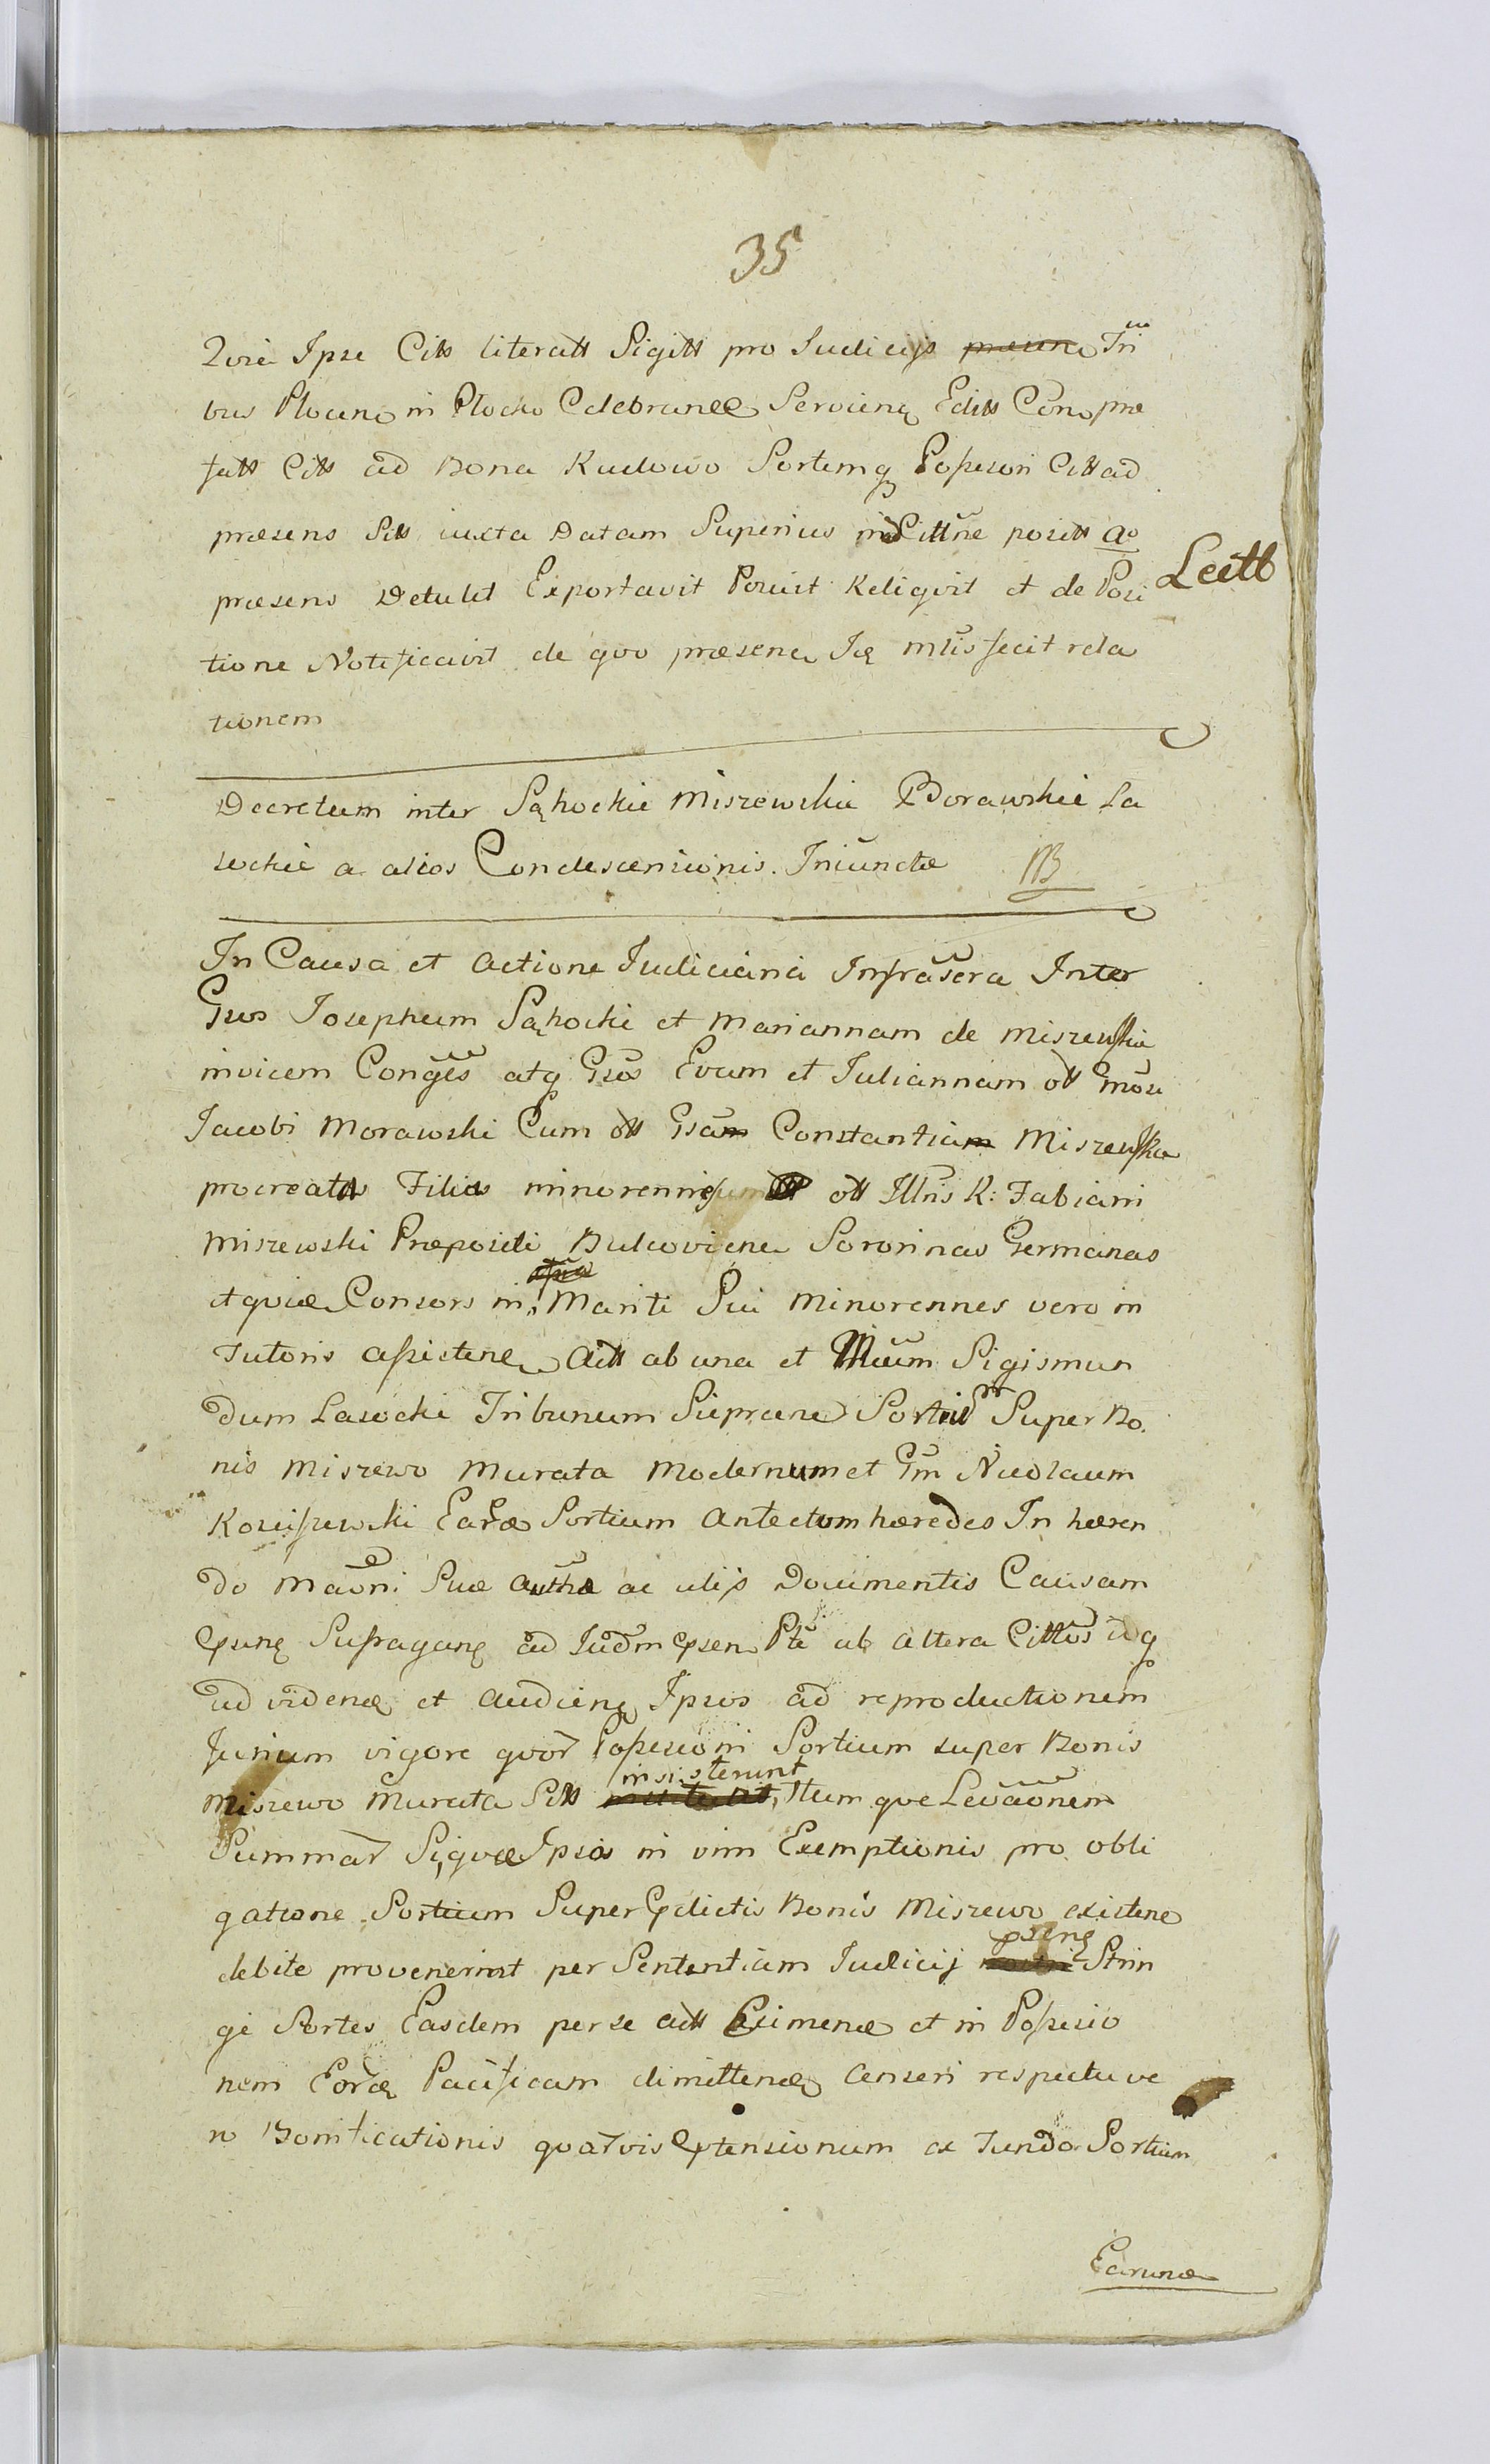 35
Quia Ipse Citt literatt Sigitt pro Iudicijs Tri
bus Plocen in Plocko Celebranee Servienq Editt Con præ
fatt Citt ad Bona Kudowo Sortemq Possesori Citt ad
præsens Sitt iuxta Datam Superius in Cittne positt ao
Lectt
præsens Detulit Exportavit Posuit Religvit et de Posi
tione Notificavit de qvo præsene Jq mlis fecit rela
tionem
Decretum inter Sąkockie Miszewskie Borawskie La
sockie a alios Condescensionis Iniunctæ
In Causa et Actione Iudiciaria Infrascra Inter
Gsos Iosephum Sąkockie et Mariannam de Miszewskie
invicem Conges atq Gsos Evam et Juliannam ott Gnosi
Jacobi Morawski Cum ott Gsam Constantiam Miszewska
procreatas Filias minorennes ott Illris R: Fabiani
Miszewski Præpositi Bulcoviene Sororinas Germanas
et qviæ Consors in Mariti Sui Minorennes vero in
Tutoris assistene Actt ab una et Mcum Sigismun
dum Lasocki Tribunum Sieprcene Sortium Super Bo
nis Miszewo Murata Modernum et Gm Nicolaum
Kosciszewski Earæ Sortium Antectum hæredes In hæren
do Maoni Suæ Autha ac alijs Documentis Causam
psnq Sufragang ad Iudm psen Pte ab altera Cittos idq
ad videnq et Audienq Ipsos ad reproductionem
Jurium vigore qvor Possesioni Sortium super Bonis
Miszewo Murata Sitt insisterunt Itum que Levaonem
Summar Siqvæ Ipsos in vim Exemptionis pro obli
gatione Sortium Super pdictis Bonis Miszewo existene
debite provenerint per Sententiam Iudicij psenq Strin
gi Sortes Easdem per se actt Eximenq et in Possesio
nem Eorq Pacificam dimittenq Censeri respectu ve
ro Bonificationis qvarvis ptensionum ex Fundo Sortium
Earunq